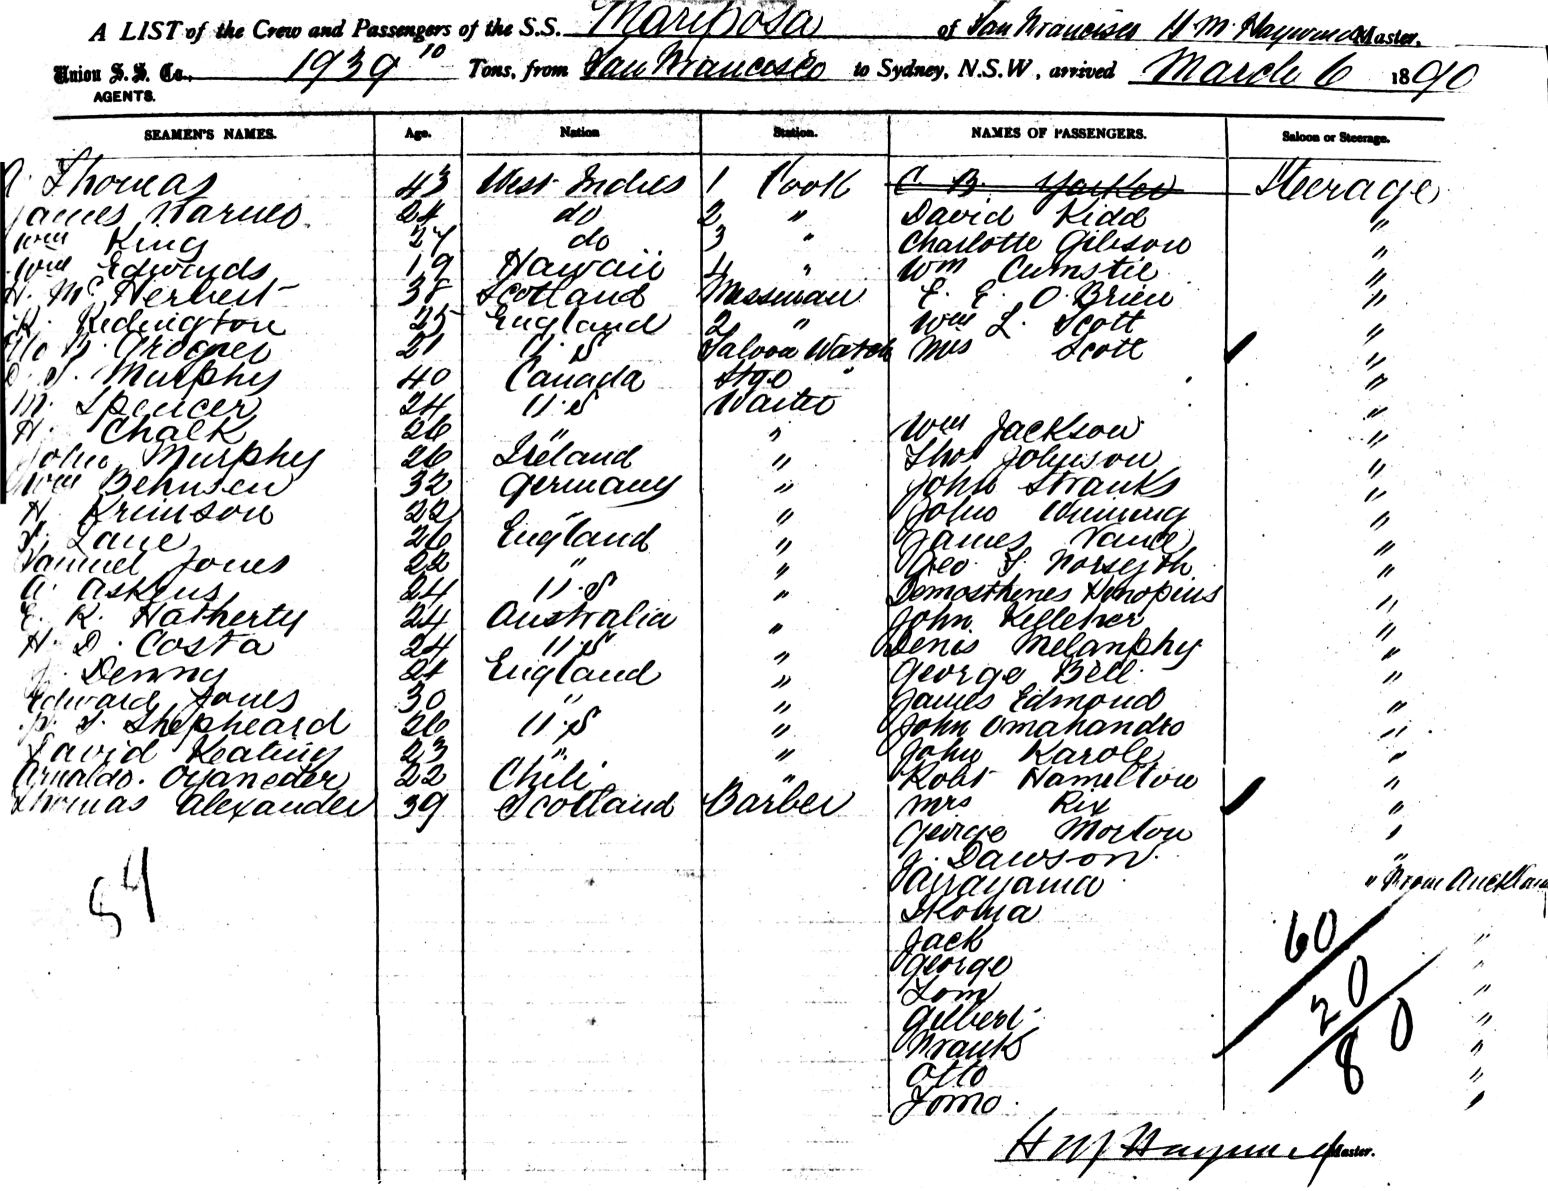 A LIST of the Crew and Passengers of the S.S. Mariposa of San Francisco H. M. Hayward Master,
Union S. S. Co., 1939 10 Tons, from San Francisco to Sydney, N.S.W, arrived March 6 1890
AGENTS.
SEAMEN'S NAMES. Age. Nation Station. NAMES OF PASSENGERS. Saloon or Steerage.
Thomas 43 West Indies 1 Cook C. B. Steerage
James Warnes 24 do 2 " David Kidd "
Wm King 27 do 3 " Charlotte Gibson "
Wm Edwards 19 Hawaii 4 " Wm Cumstie "
H. Mc Herbert 38 Scotland Messman E. E. O'Brien "
R. Redington 25 England 2 " Wm L. Scott "
Grooper 21 U.S Saloon Watch Mrs Scott "
Murphy 40 Canada Stge " "
M. Spencer 24 U.S Waiter "
H. Chalk 26 " " Wm Jackson "
John Murphy 26 Ireland " Thos Johnson "
Wm Behnsen 32 Germany " John Stranks "
H. Krimson 22 " " John Wining "
Lane 26 England " James Vance "
Samuel Jones 22 " " Geo. Forsyth "
A. Askins 24 U.S " Demosthenes Honopius "
E. R. Hatherty 24 Australia " John Kelleher "
H. D. Costa 24 U.S " Denis Melanphy "
J. Denny 24 England " George Bell "
Edward Jones 30 " " James Edmond "
Shepheard 26 U.S " John Omahandro "
David Keating 23 " " John Karole "
Arnaldo. Oyaneder 22 Chili " Robt Hamelton "
Thomas Alexander 39 Scotland Barber Mrs Rix "
George Morton "
J. Dawson "
54 Airayama " From Auckland
Ikoma
60 Jack "
George "
20 Tom "
Gilbert "
80 Frank "
Otto "
Tomo "
H M Hayward Master.